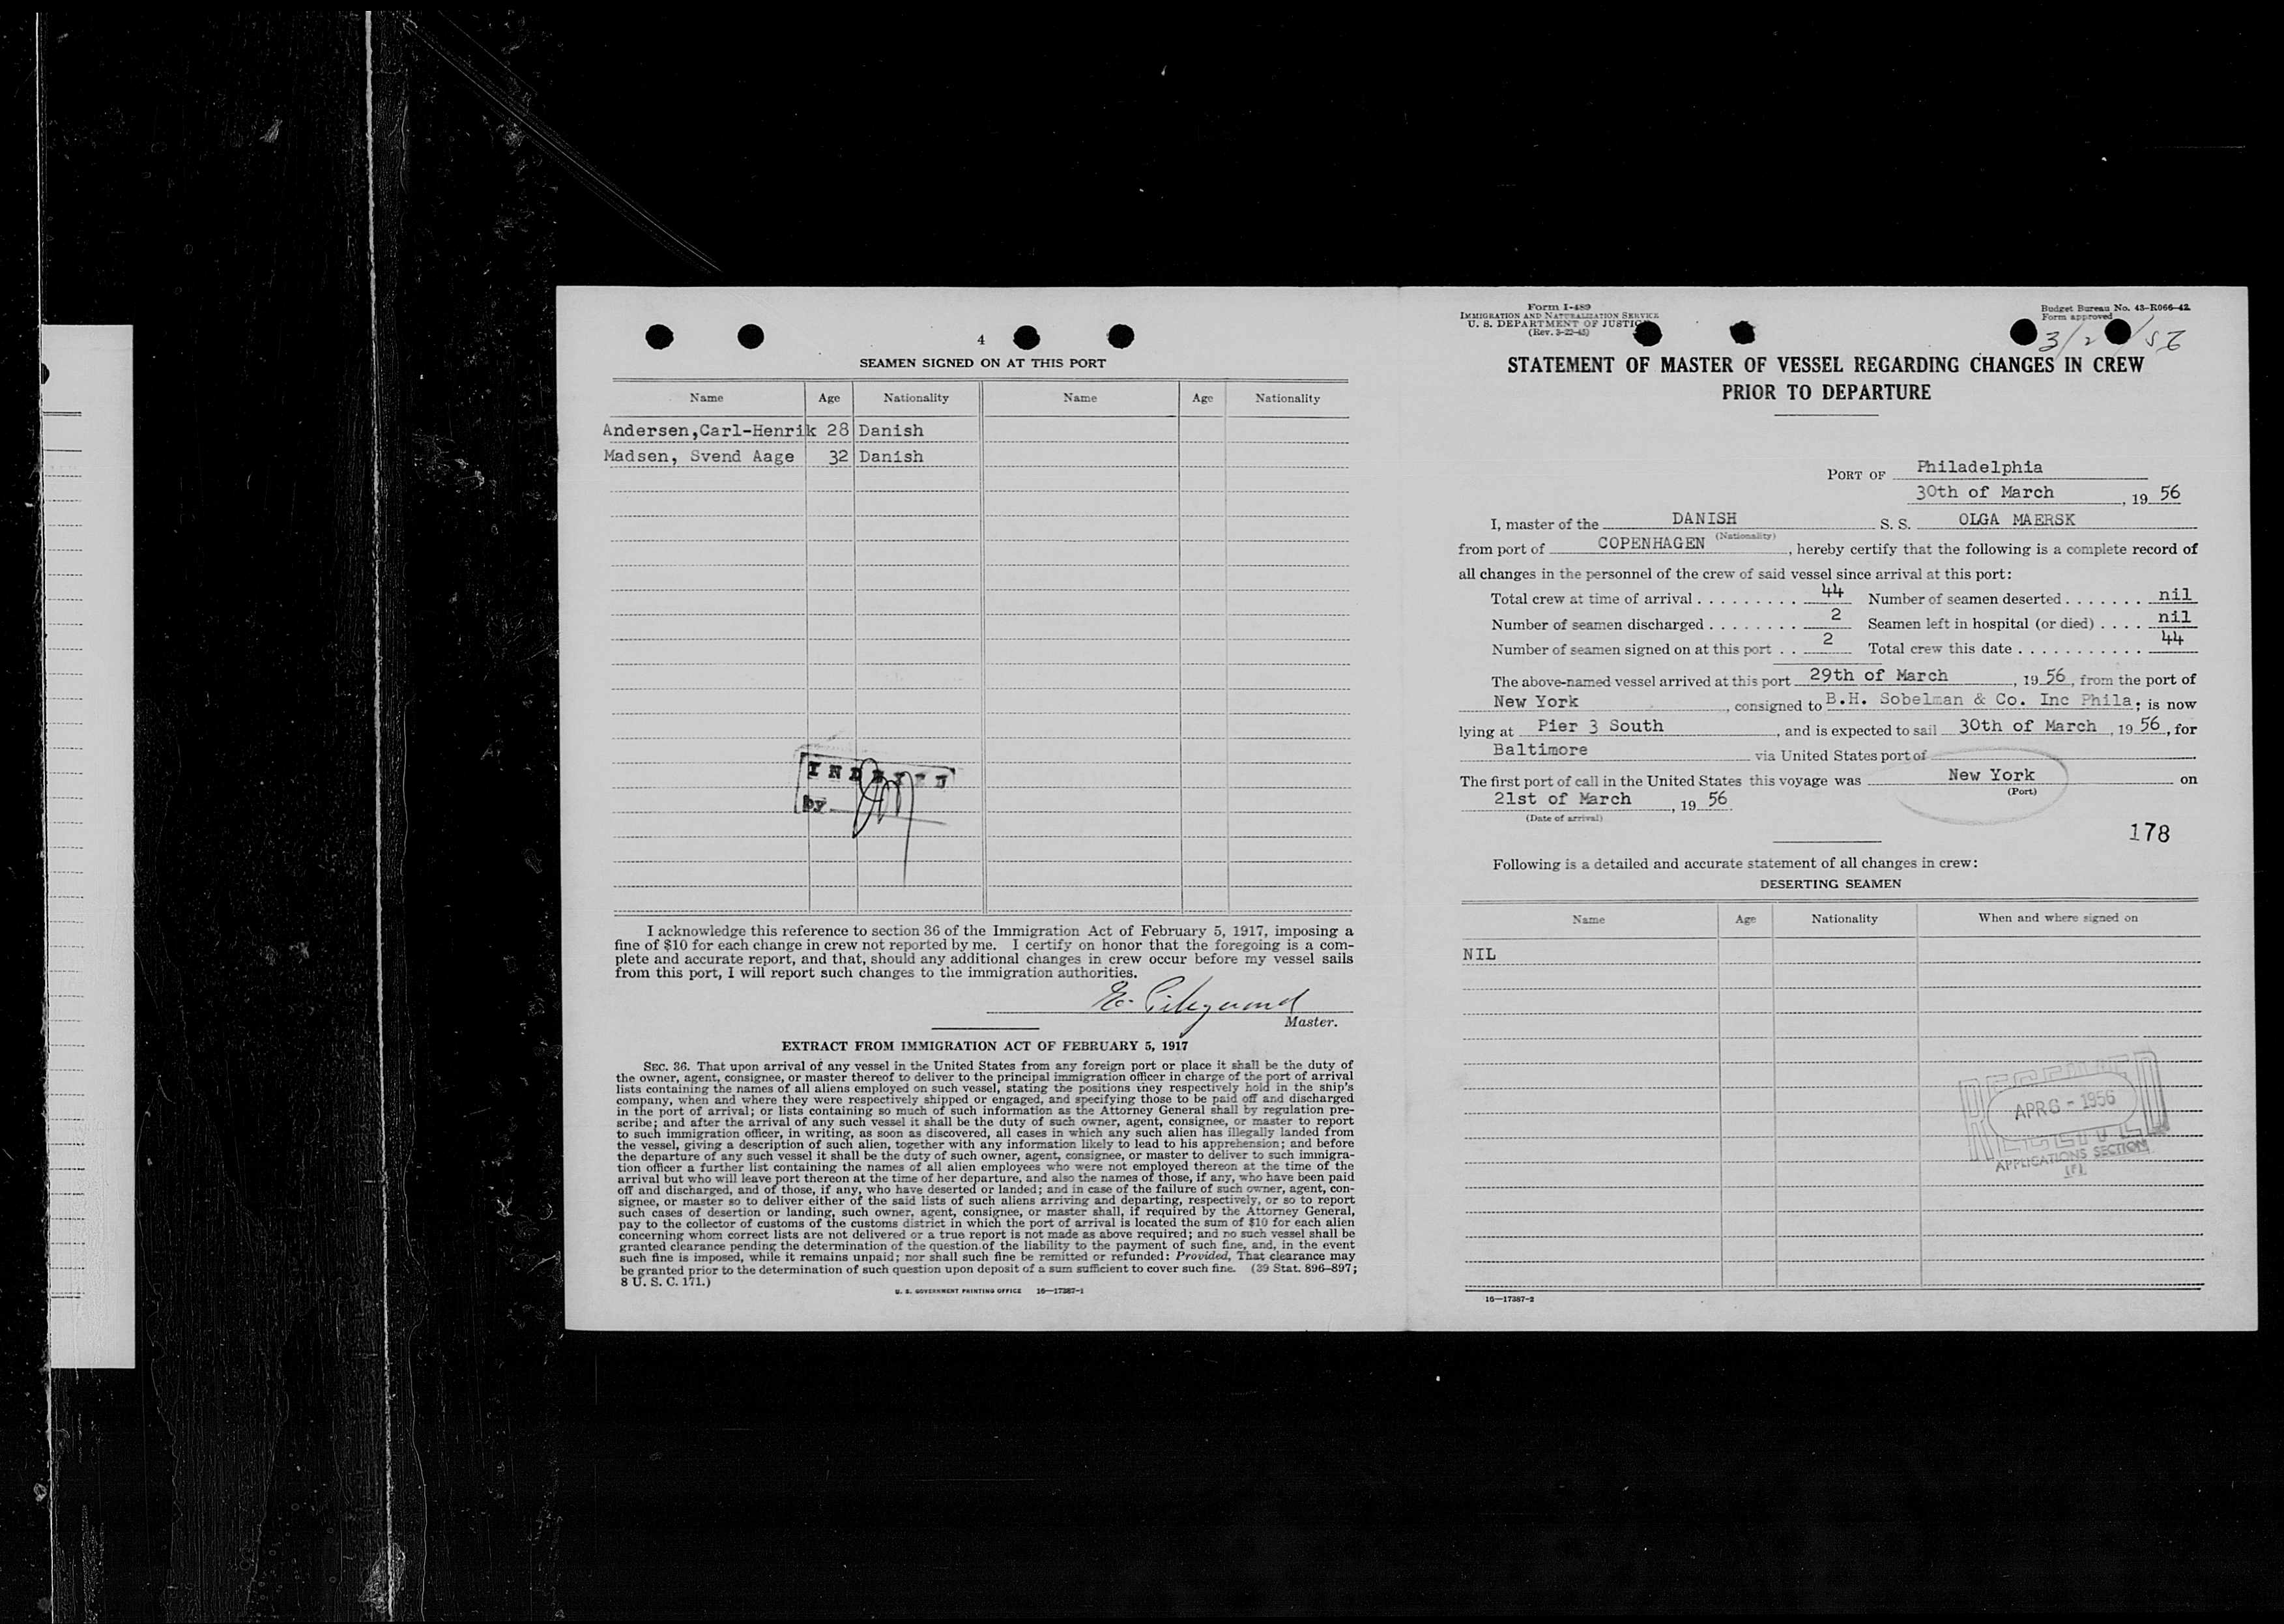 4
SEAMEN SIGNED ON AT THIS PORT
Name Age Nationality Name Age Nationality
Andersen,Carl-Henrik 28 Danish
Madsen, Svend Aage 32 Danish
by
I acknowledge this reference to section 36 of the Immigration Act of February 5, 1917, imposing a
fine of $10 for each change in crew not reported by me. I certify on honor that the foregoing is a com-
plete and accurate report, and that, should any additional changes in crew occur before my vessel sails
from this port, I will report such changes to the immigration authorities.
Master.
EXTRACT FROM IMMIGRATION ACT OF FEBRUARY 5, 1917
SEC. 36. That upon arrival of any vessel in the United States from any foreign port or place it shall be the duty of
the owner, agent, consignee, or master thereof to deliver to the principal immigration officer in charge of the port of arrival
lists containing the names of all aliens employed on such vessel, stating the positions they respectively hold in the ship's
company, when and where they were respectively shipped or engaged, and specifying those to be paid off and discharged
in the port of arrival; or lists containing so much of such information as the Attorney General shall by regulation pre-
scribe; and after the arrival of any such vessel it shall be the duty of such owner, agent, consignee, or master to report
to such immigration officer, in writing, as soon as discovered, all cases in which any such alien has illegally landed from
the vessel, giving a description of such alien, together with any information likely to lead to his apprehension; and before
the departure of any such vessel it shall be the duty of such owner, agent, consignee, or master to deliver to such immigra-
tion officer a further list containing the names of all alien employees who were not employed thereon at the time of the
arrival but who will leave port thereon at the time of her departure, and also the names of those, if any, who have been paid
off and discharged, and of those, if any, who have deserted or landed; and in case of the failure of such owner, agent, con-
signee, or master so to deliver either of the said lists of such aliens arriving and departing, respectively, or so to report
such cases of desertion or landing, such owner, agent, consignee, or master shall, if required by the Attorney General,
pay to the collector of customs of the customs district in which the port of arrival is located the sum of $10 for each alien
concerning whom correct lists are not delivered or a true report is not made as above required; and no such vessel shall be
granted clearance pending the determination of the question of the liability to the payment of such fine, and, in the event
such fine is imposed, while it remains unpaid; nor shall such fine be remitted or refunded: Provided, That clearance may
be granted prior to the determination of such question upon deposit of a sum sufficient to cover such fine. (39 Stat. 896-897;
8 U. S. C. 171.)
U. S. GOVERNMENT PRINTING OFFICE 16—17387-1
Form I-489
IMMIGRATION AND NATURALIZATION SERVICE
U. S. DEPARTMENT OF JUSTICE
(Rev. 3-22-45)
Budget Bureau No. 43-R066-42
Form approved
STATEMENT OF MASTER OF VESSEL REGARDING CHANGES IN CREW
PRIOR TO DEPARTURE
PORT OF Philadelphia
30th of March , 19 56
I, master of the DANISH S. S. OLGA MAERSK
(Nationality)
from port of COPENHAGEN , hereby certify that the following is a complete record of
all changes in the personnel of the crew of said vessel since arrival at this port:
Total crew at time of arrival . . . . . . . . . 44 Number of seamen deserted . . . . . . . nil
Number of seamen discharged . . . . . . . . 2 Seamen left in hospital (or died) . . . . nil
Number of seamen signed on at this port . . 2 Total crew this date . . . . . . . . . . . 44
The above-named vessel arrived at this port 29th of March , 19 56, from the port of
New York , consigned to B.H. Sobelman & Co. Inc Phila; is now
lying at Pier 3 South , and is expected to sail 30th of March , 19 56, for
Baltimore via United States port of
The first port of call in the United States this voyage was New York on
(Port)
21st of March , 19 56
(Date of arrival)
178
Following is a detailed and accurate statement of all changes in crew:
DESERTING SEAMEN
Name Age Nationality When and where signed on
NIL
APR 6 - 1956
APPLICATIONS SECTION
16—17387-2